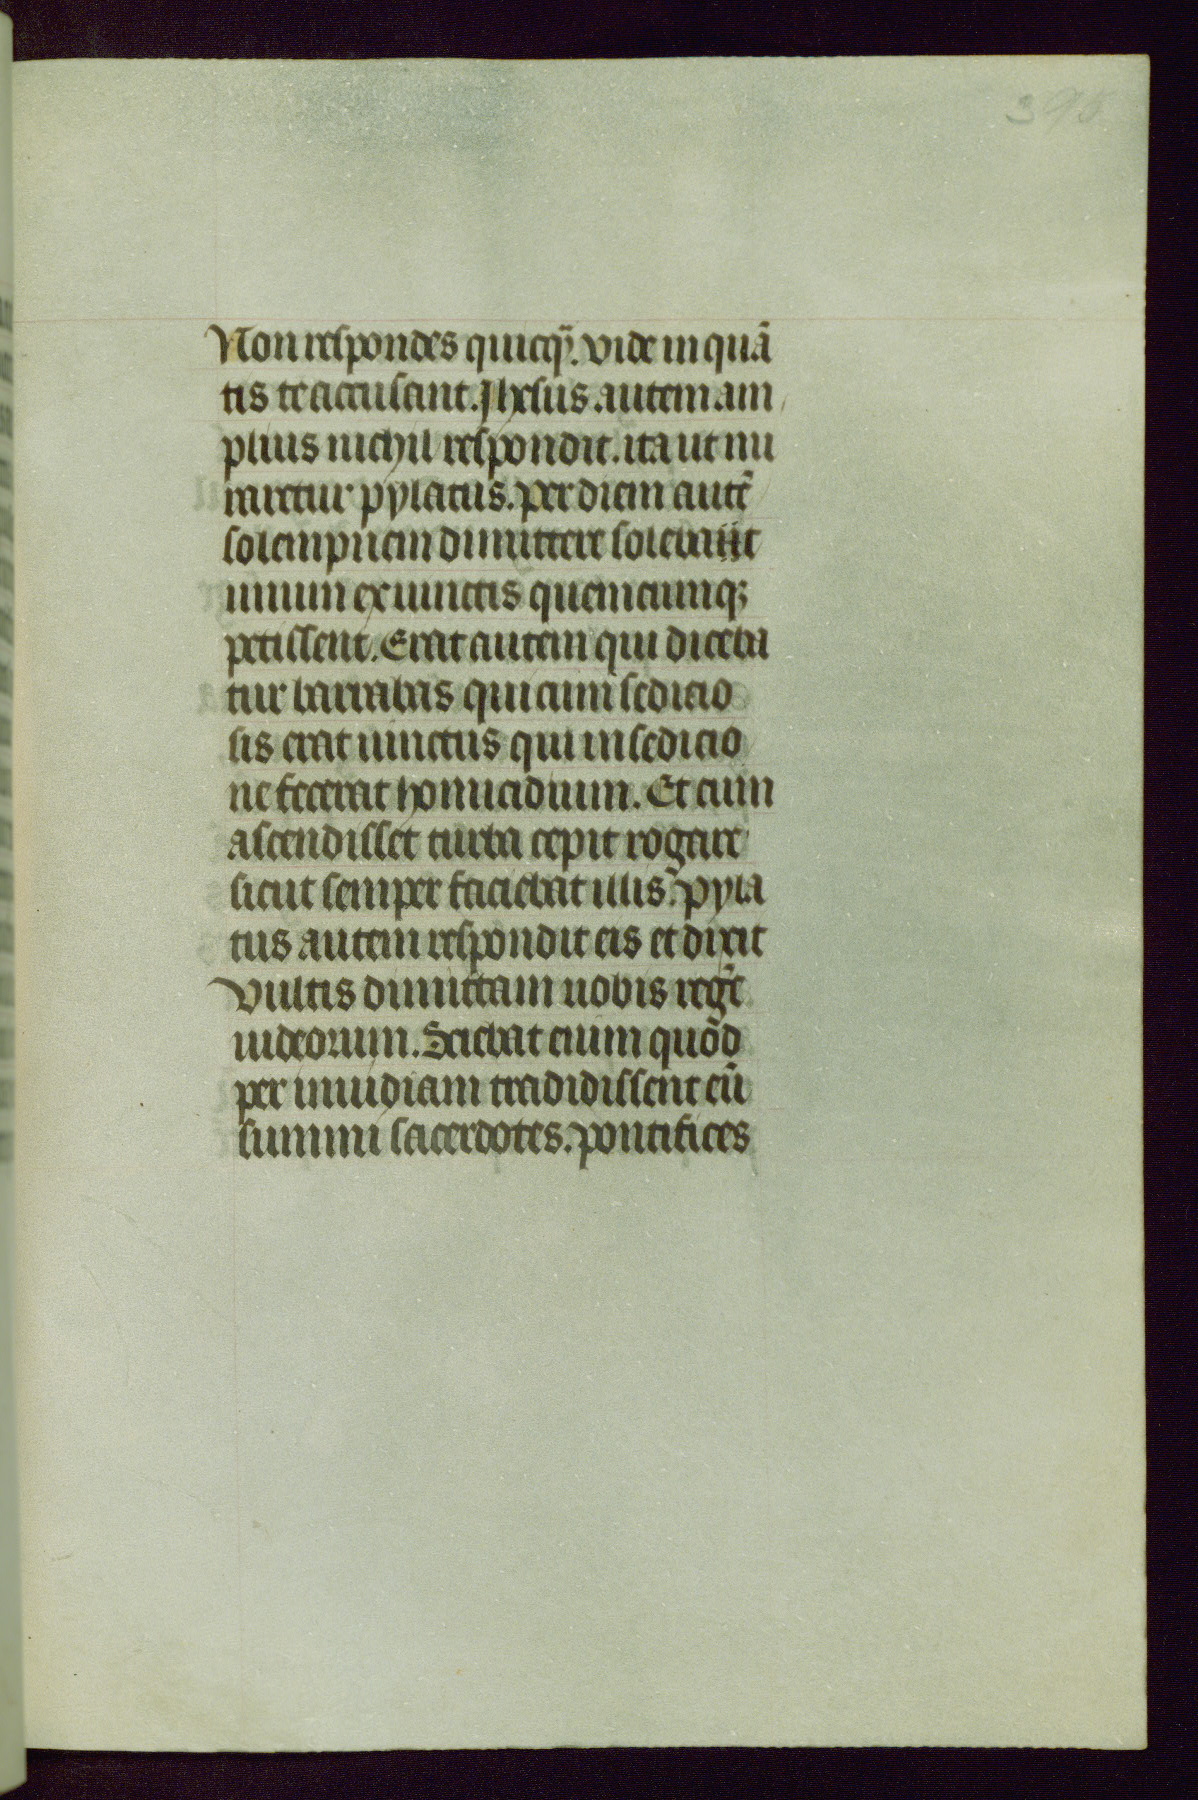 395
Non respondes quicq̃. vide in quã
tis te accusant. Jhesus autem am
plius nichil respondit. ita ut mi
raretur pylatus. per diem autẽ
solempnem dimittere solebat
unum ex uinctis quemcumqꝫ
petissent. Erat autem qui diceba
tur barrabas qui cum sedicio
sis erat uinctus qui in sedicio
ne fecerat homicidium. Et cum
ascendisset turba cepit rogare
sicut semper faciebat illis. pyla
tus autem respondit eis et dixit
Vultis dimittam uobis regẽ
iudeorum. Sciebat enim quod
per inuidiam tradidissent eũ
summi sacerdotes. pontifices